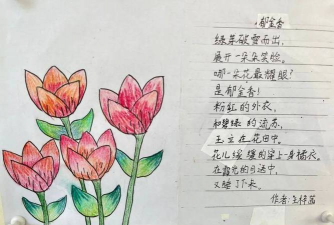 郁金香
绿芽破雪而出，
展开一朵朵笑脸。
哪一朵花最耀眼？
是郁金香！
粉红的外衣，
和碧绿的流苏，
玉立在花田中。
花儿缓缓的穿上一身橘衣。
在霞光的目送中，
又睡了下来。
作者：王梓茜